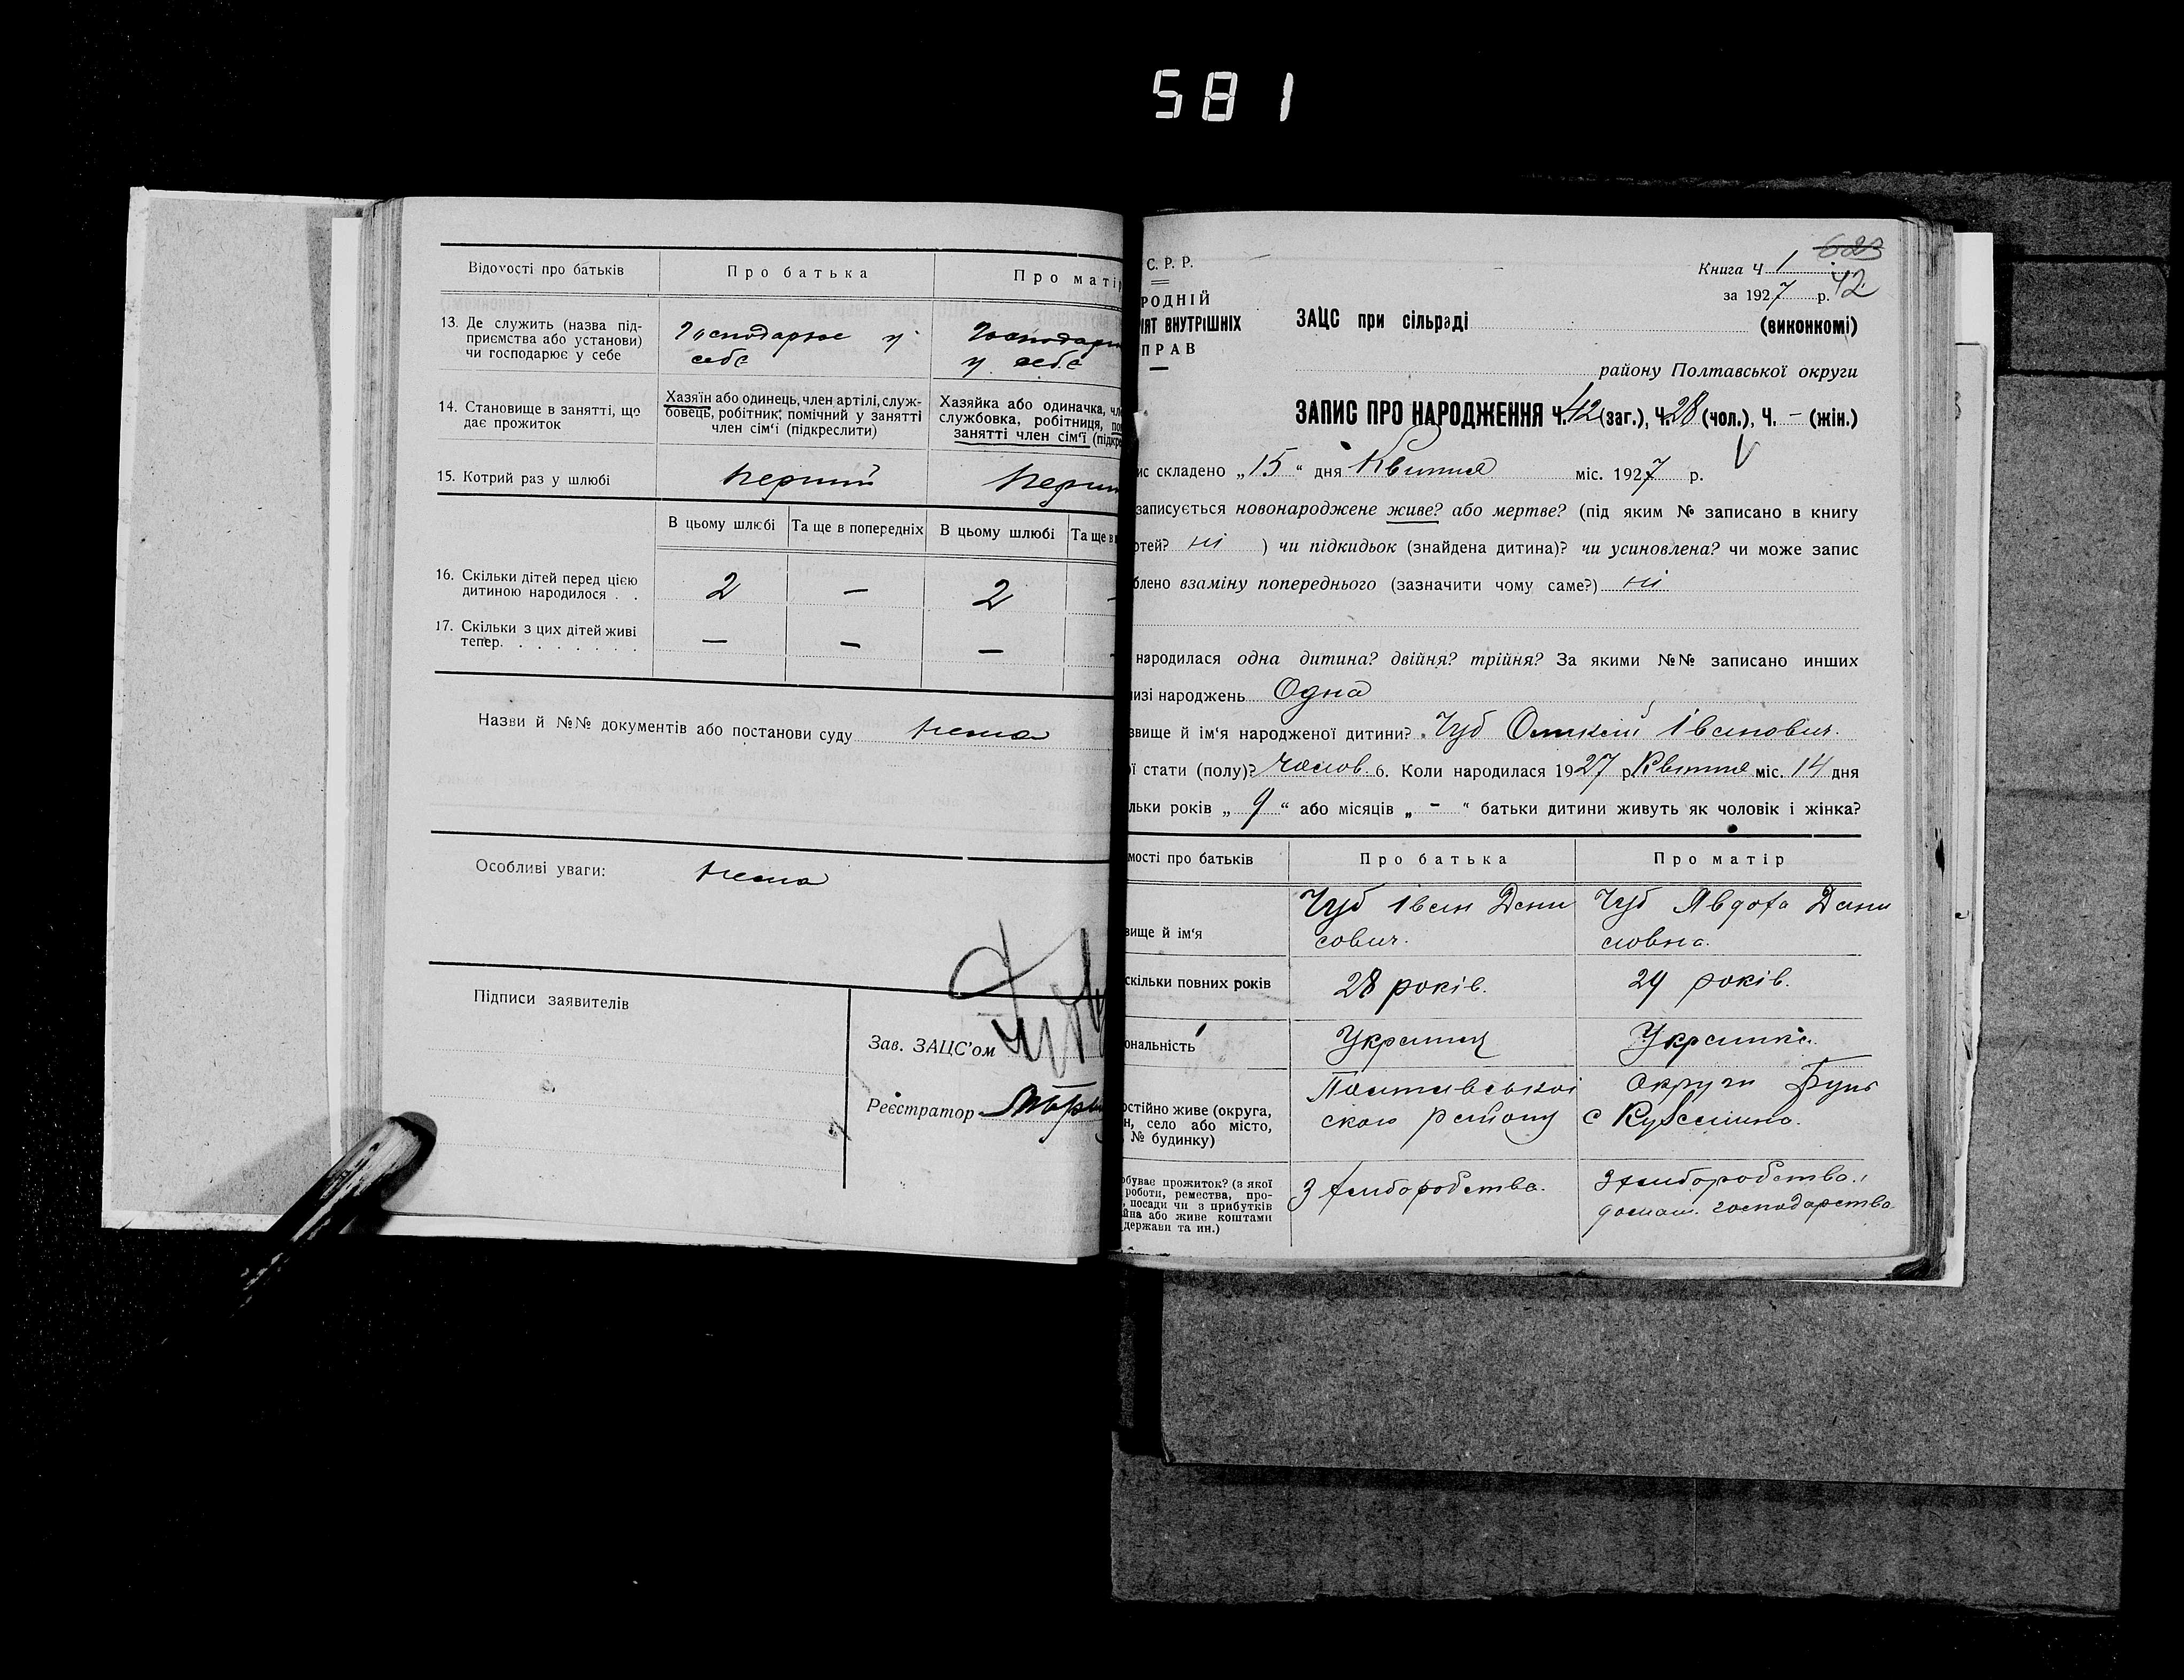 581
Відомості про батьків
Про батька
Про матір
13. Де служить (назва під-
приємства або установи)
чи господарює у себе
Господарює у
себе
Господарю
у себе
14. Становище в занятті, що
дає прожиток
Хазяїн або одинець, член артілі, служ-
бовець, робітник; помічний у занятті
член сім'ї (підкреслити)
Хазяйка або одиначка, чле
службовка, робітниця, по
занятті член сім'ї (підкре
15. Котрий раз у шлюбі
перший
перш
В цьому шлюбі
Та ще в попередніх
В цьому шлюбі
Та ще в
16. Скільки дітей перед цією
дитиною народилося . .
2
—
2
17. Скільки з цих дітей живі
тепер. . . . . . . .
—
—
—
Назви й №№ документів або постанови суду нема
Особливі уваги: нема
Підписи заявителів
Зав. ЗАЦС'ом
Реєстратор
С. Р. Р.
РОДНІЙ
ІЯТ ВНУТРІШНІХ
ПРАВ
623
Книга ч 1
42
за 1927 р.
ЗАЦС при сільраді (виконкомі)
району Полтавської округи
ЗАПИС ПРО НАРОДЖЕННЯ Ч. 42 (заг.), Ч. 28 (чол.), Ч. - (жін.)
ис складено „15" дня Квітня міс. 1927 р.
записується новонароджене живе? або мертве? (під яким № записано в книгу
ртей? ні ) чи підкидьок (знайдена дитина)? чи усиновлена? чи може запис
блено взаміну попереднього (зазначити чому саме?) ні
народилася одна дитина? двійня? трійня? За якими №№ записано инших
изі народжень Одна
звище й ім'я народженої дитини? Чуб Іванович.
ї стати (полу)? Чолов. 6. Коли народилася 1927 р Квітня міс. 14 дня
льки років „9" або місяців „-" батьки дитини живуть як чоловік і жінка?
мості про батьків
Про батька
Про матір
звище й ім'я
Чуб Іван Дени
сович.
Чуб Явдоха Дани
ловна.
скільки повних років
28 років.
29 років.
ональність
Українец
Українка.
остійно живе (округа,
н, село або місто,
№ будинку)
Полтавської округи
ского району с
обуває прожиток? (з якої
роботи, ремества, про-
, посади чи з прибутків
йна або живе коштами
держави та ин.)
З хліборобства.
З хліборобства.
домаш. господарства